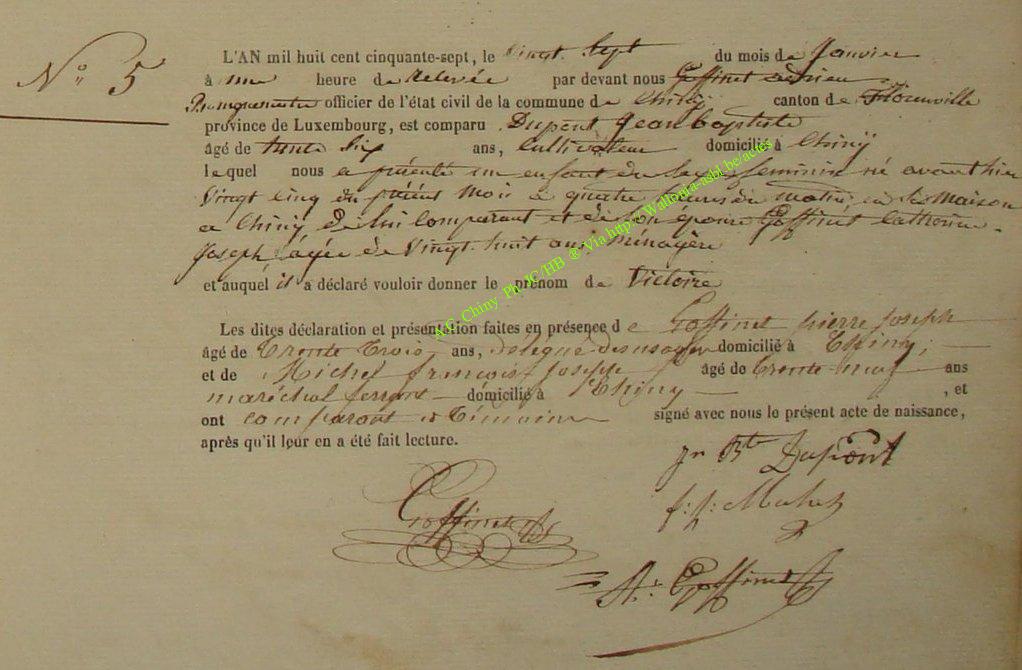 N° 5
L'AN mil huit cent cinquante-sept, le vingt Sept du mois de Janvier
à une heure de relevée par devant nous Goffinet adrien
Bourguemestre officier de l'état civil de la commune de Chiny, canton de Florenville
province de Luxembourg, est comparu Dupont Jean baptiste
âgé de trente Six ans, Cultivateur domicilié à Chiny
lequel nous a présenté un enfant du Sexe féminin né avant hier
vingt cinq du présent mois à quatre heures du matin en sa Maison
à Chiny de lui comparant et de Son épouse Goffinet Catherine
Joseph, âgée de vingt huit ans ménagère
et auquel il a déclaré vouloir donner le prénom de Victoire
Les dites déclaration et présentation faites en présence de Goffinet pierre Joseph
âgé de trente trois, ans, délégué des domicilié à Chiny,
et de Michel françois Joseph âgé de trente neuf ans
maréchal ferrant domicilié à Chiny, et
ont comparant et témoins signé avec nous le présent acte de naissance,
après qu'il leur en a été fait lecture.
jn Bte Dupont
Goffinet
f: j: Michel
Ad: Goffinet
A.C. Chiny Ph JC/HB ® Via http://Wallonia-asbl.be/actes